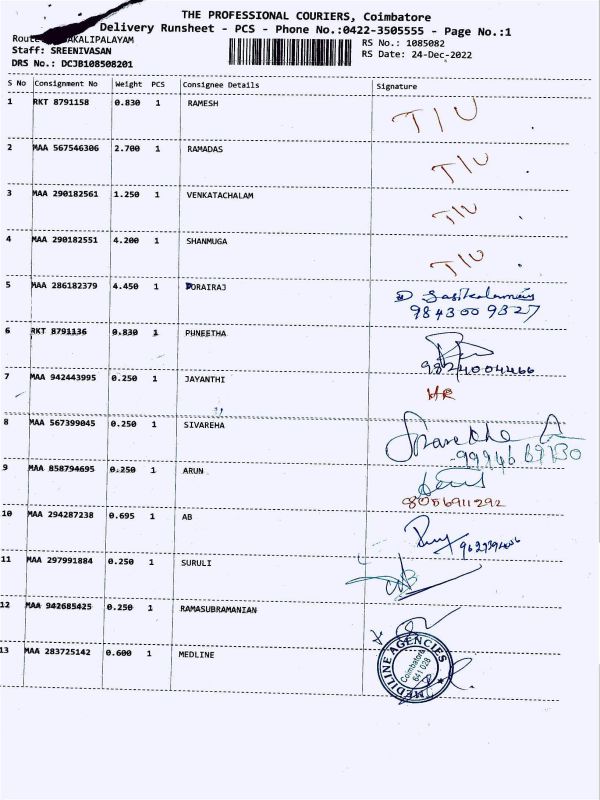 THE PROFESSIONAL COURIERS, Coimbatore
Delivery Runsheet - PCS - Phone No.:0422-3505555 - Page No.:1
RS No.: 1085082
Staff: SREENIVASAN
RS Date: 24-Dec-2022
DRS No.: DCJB108508201
S No Consignment No Weight PCS Consignee Details Signature
1 RKT 8791158 0.830 1 RAMESH T/U
2 MAA 567546306 2.700 1 RAMADAS T/U
3 MAA 290182561 1.250 1 VENKATACHALAM T/U
4 MAA 290182551 4.200 1 SHANMUGA T/U
5 MAA 286182379 4.450 1 DORAIRAJ
9843009327
6 RKT 8791136 0.830 1 PUNEETHA
9824004466
7 MAA 942443995 0.250 1 JAYANTHI
8 MAA 567399045 0.250 1 SIVAREHA
9 MAA 858794695 0.250 1 ARUN
8056911292
10 MAA 294287238 0.695 1 AB
11 MAA 297991884 0.250 1 SURULI
12 MAA 942685425 0.250 1 RAMASUBRAMANIAN
13 MAA 283725142 0.600 1 MEDLINE
MEDILINE AGENCIES
Coimbatore
641 028